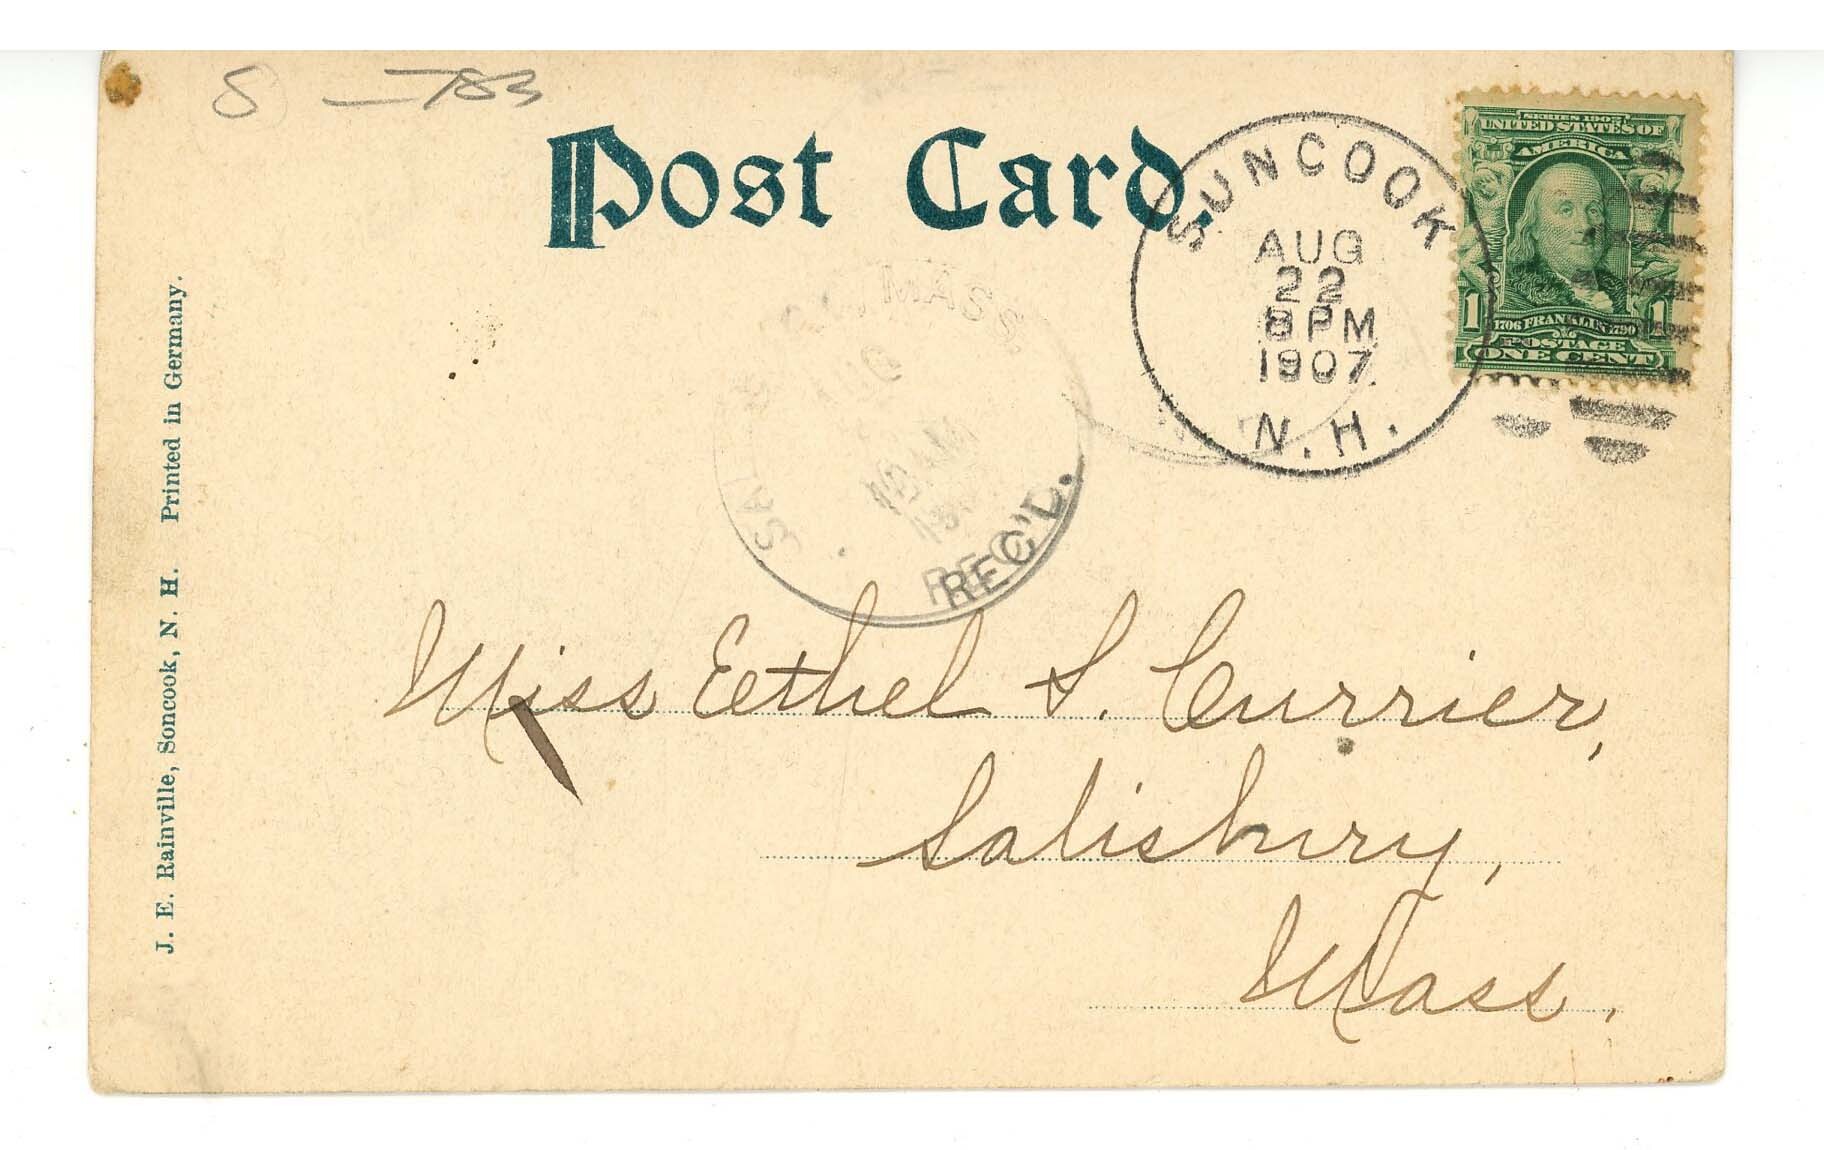 S — 783
Post Card.
SUNCOOK
AUG
22
8 PM
1907
N.H.
SERIES 1902
UNITED STATES OF
AMERICA
1 1706 FRANKLIN 1790 1
POSTAGE
ONE CENT
MASS.
AUG
AM
REC'D.
Miss Ethel S. Currier,
Salisbury,
Mass.
J. E. Rainville, Soncook, N. H. Printed in Germany.